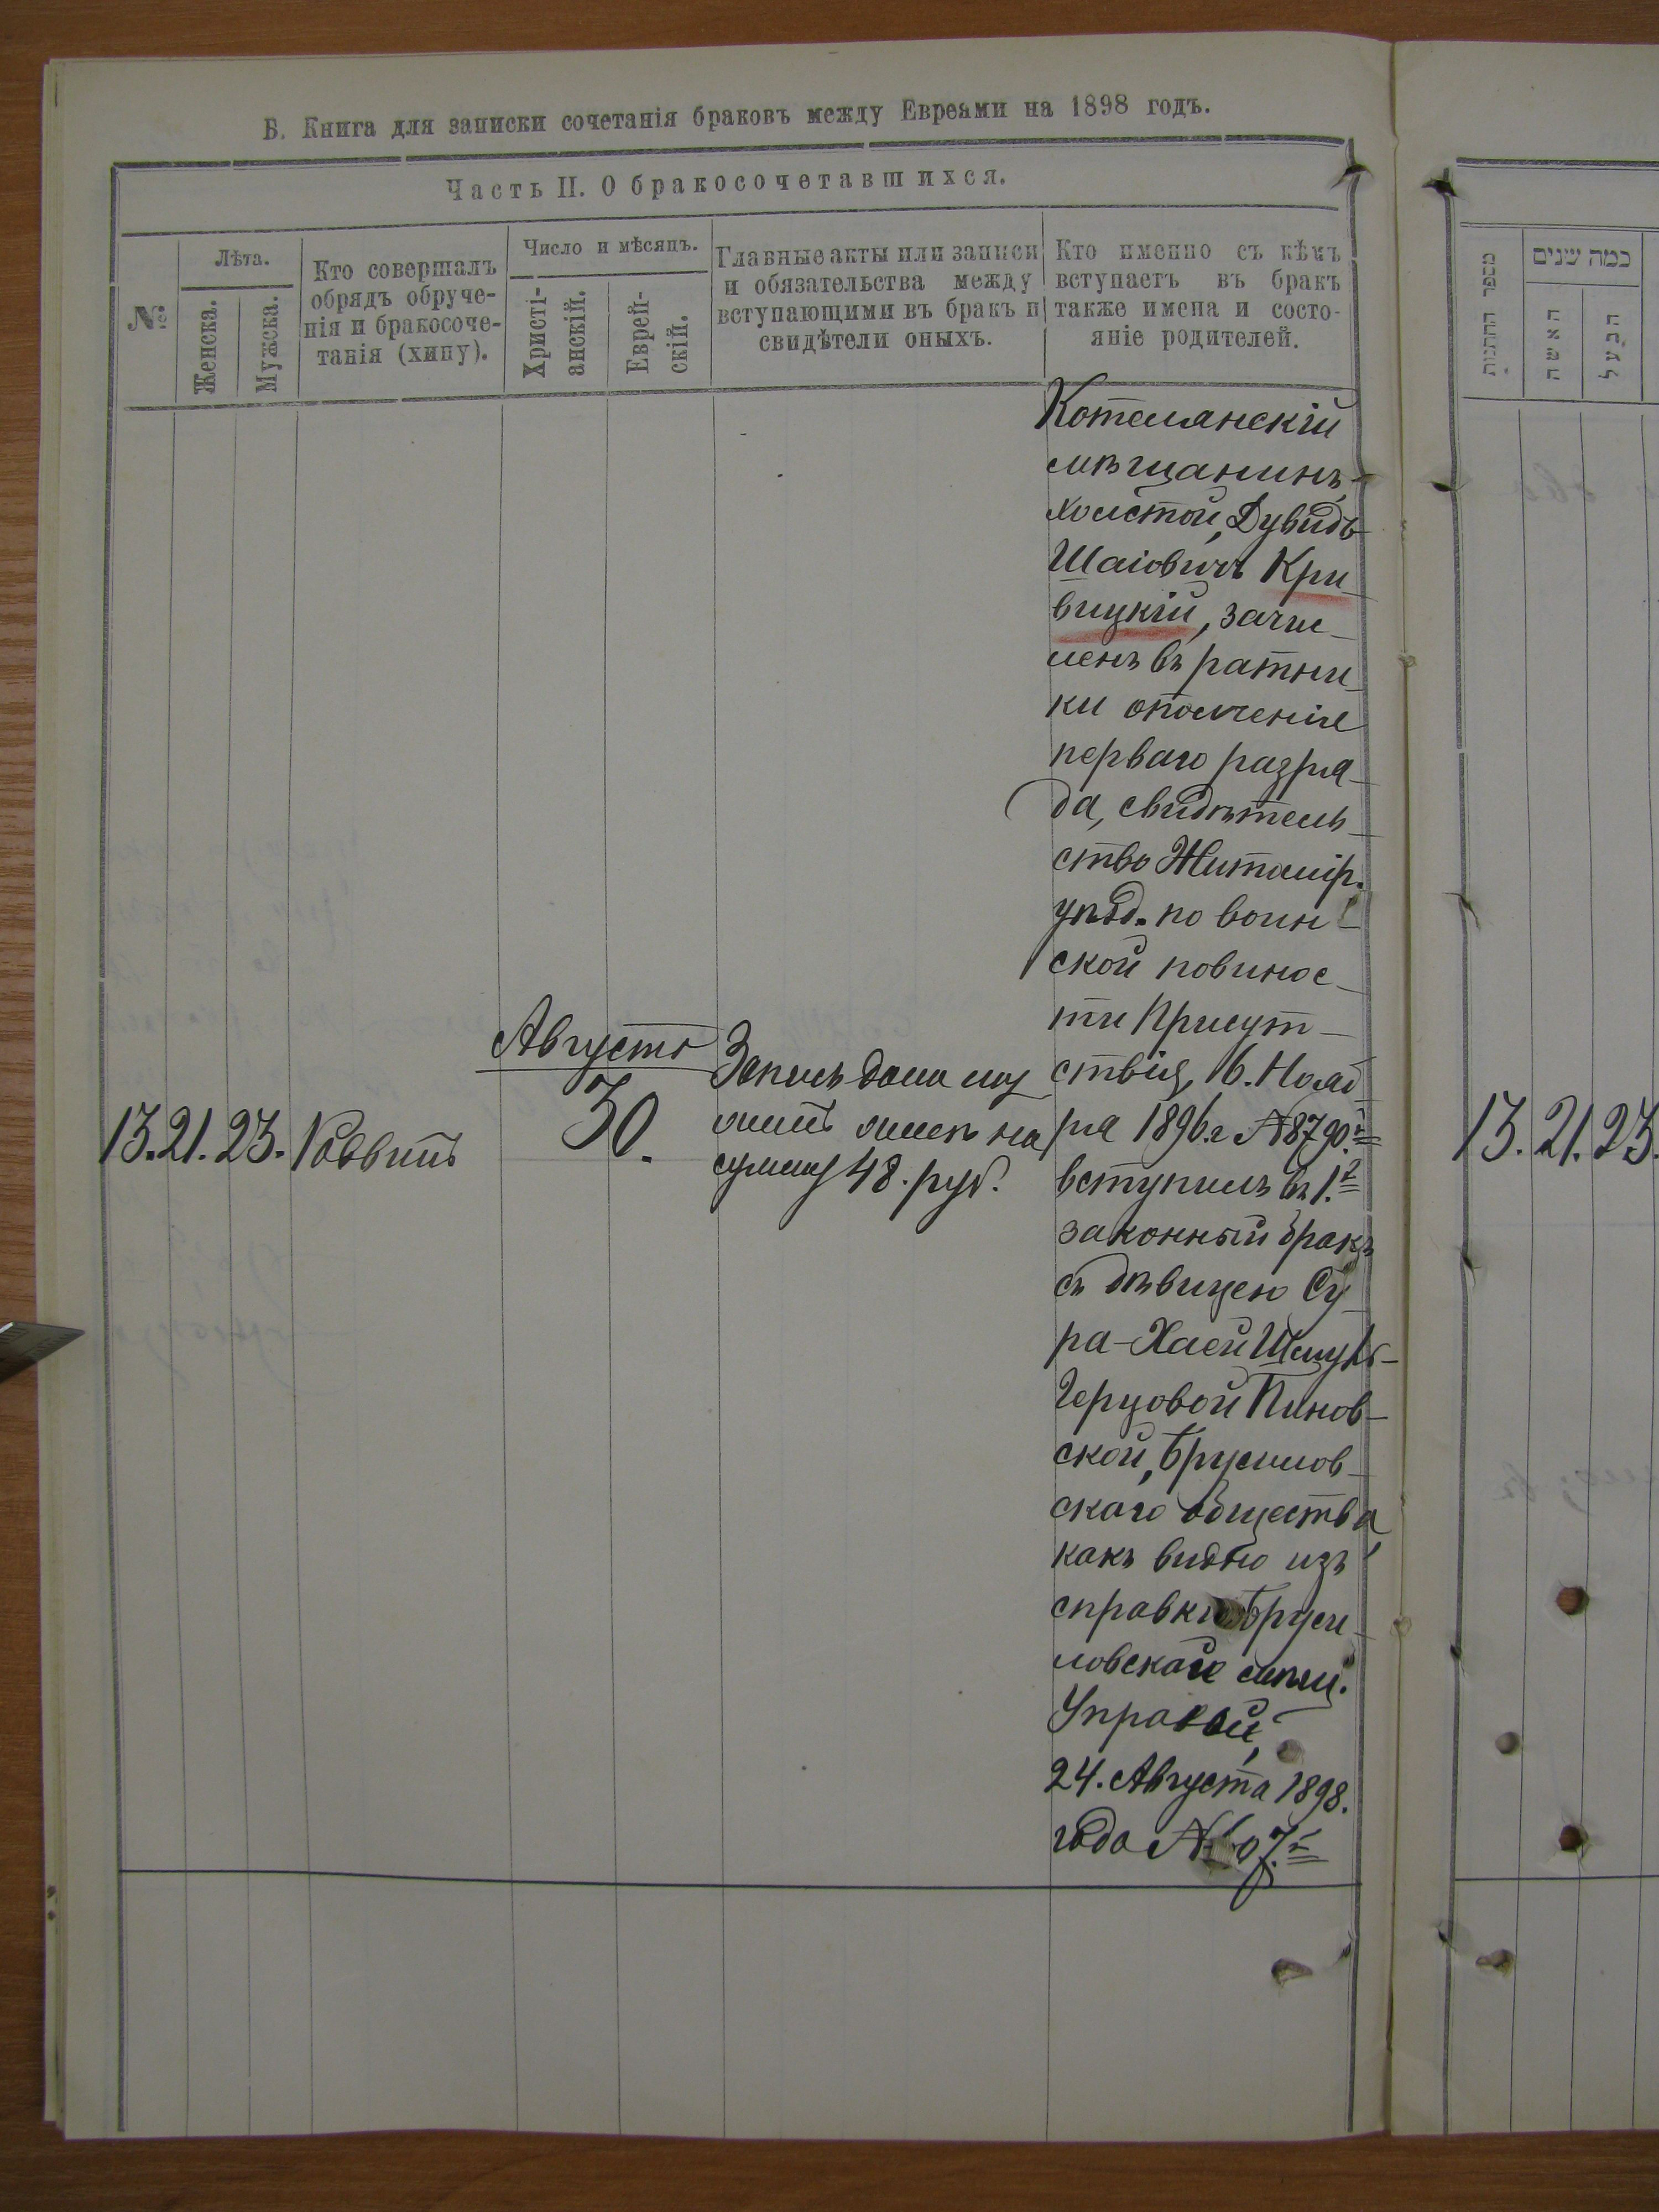 Б. Книга для записки сочетанія браковъ между Евреями на 1898 годъ.
Часть II. О бракосочетавшихся.
№
Лѣта.
Женска.
Мужска.
Кто совершалъ
обрядъ обруче-
нія и бракосоче-
танія (хипу).
Число и мѣсяцъ.
Христі-
анскій.
Еврей-
скій.
Главные акты или записи
и обязательства между
вступающими въ бракъ и
свидѣтели оныхъ.
Кто именно съ кѣмъ
вступаетъ въ бракъ
также имена и состо-
яніе родителей.
13. 21. 23. Раввинъ
Августъ
30.
Запись дана му
жемъ женѣ на
сумму 48. руб.
Котелянскій
мѣщанинъ,
холостой, Дувидъ
Шаіовичъ Кри
вицкій, зачис-
ленъ въ ратни
ки ополченія
перваго разря-
да, свидѣтель-
ство Житомір.
уѣзд. по воин-
ской повинос-
ти Присут-
ствія, 16. Нояб
ря 1896.г №8790.
вступилъ въ 1.й
законный бракъ
съ дѣвицею Су
ра-Хаей Шмуль-
Герцовой Пинов-
ской, Брусилов-
скаго общества,
какъ видно изъ
справки Бруси-
ловской мѣщ.
Управы,
24. Августа 1898.
года №
מספר החתנות
כמה שנים
האשה
הבעל
13. 21. 23.